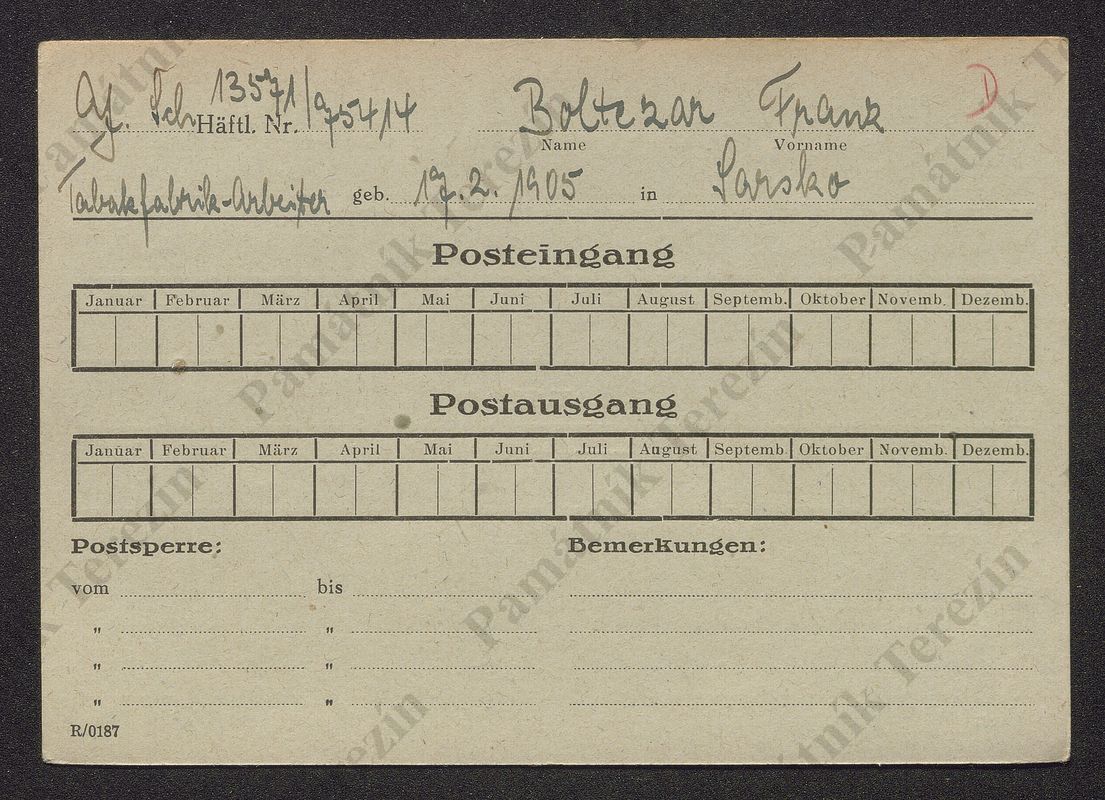 Gf. Sch Häftl. Nr. 13571/75414 Boltezar Franz D
Name Vorname
Tabakfabrik-Arbeiter geb. 17.2.1905 in Sarsko
Posteingang
Januar Februar März April Mai Juni Juli August Septemb. Oktober Novemb. Dezemb.
Postausgang
Januar Februar März April Mai Juni Juli August Septemb. Oktober Novemb. Dezemb.
Postsperre: Bemerkungen:
vom bis
" "
" "
" "
R/0187
Památník Terezín